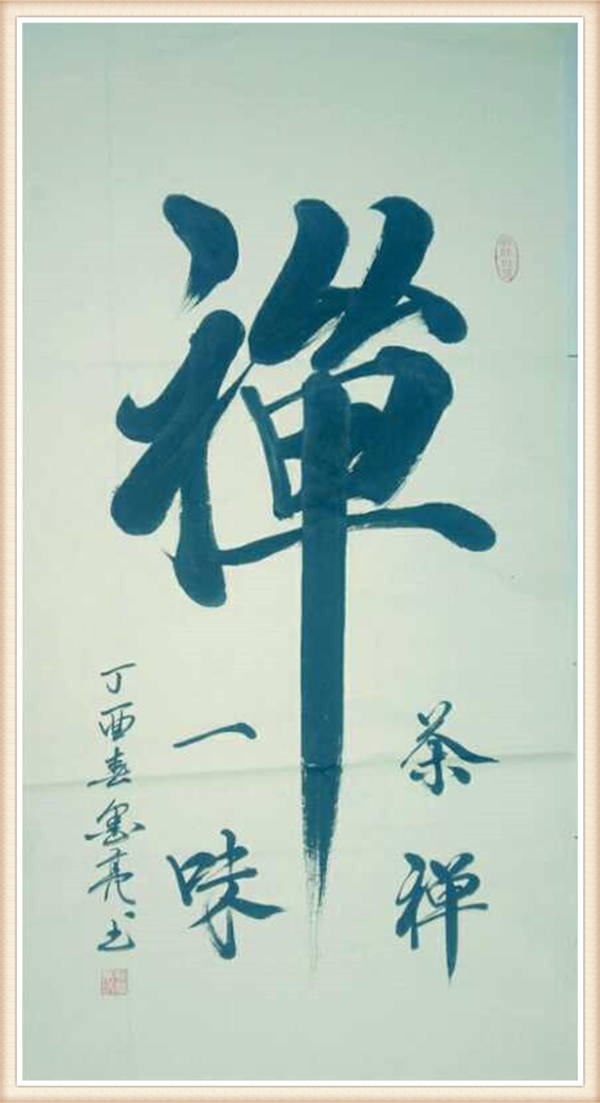 禅
茶禅
一味
丁酉春墨亮书